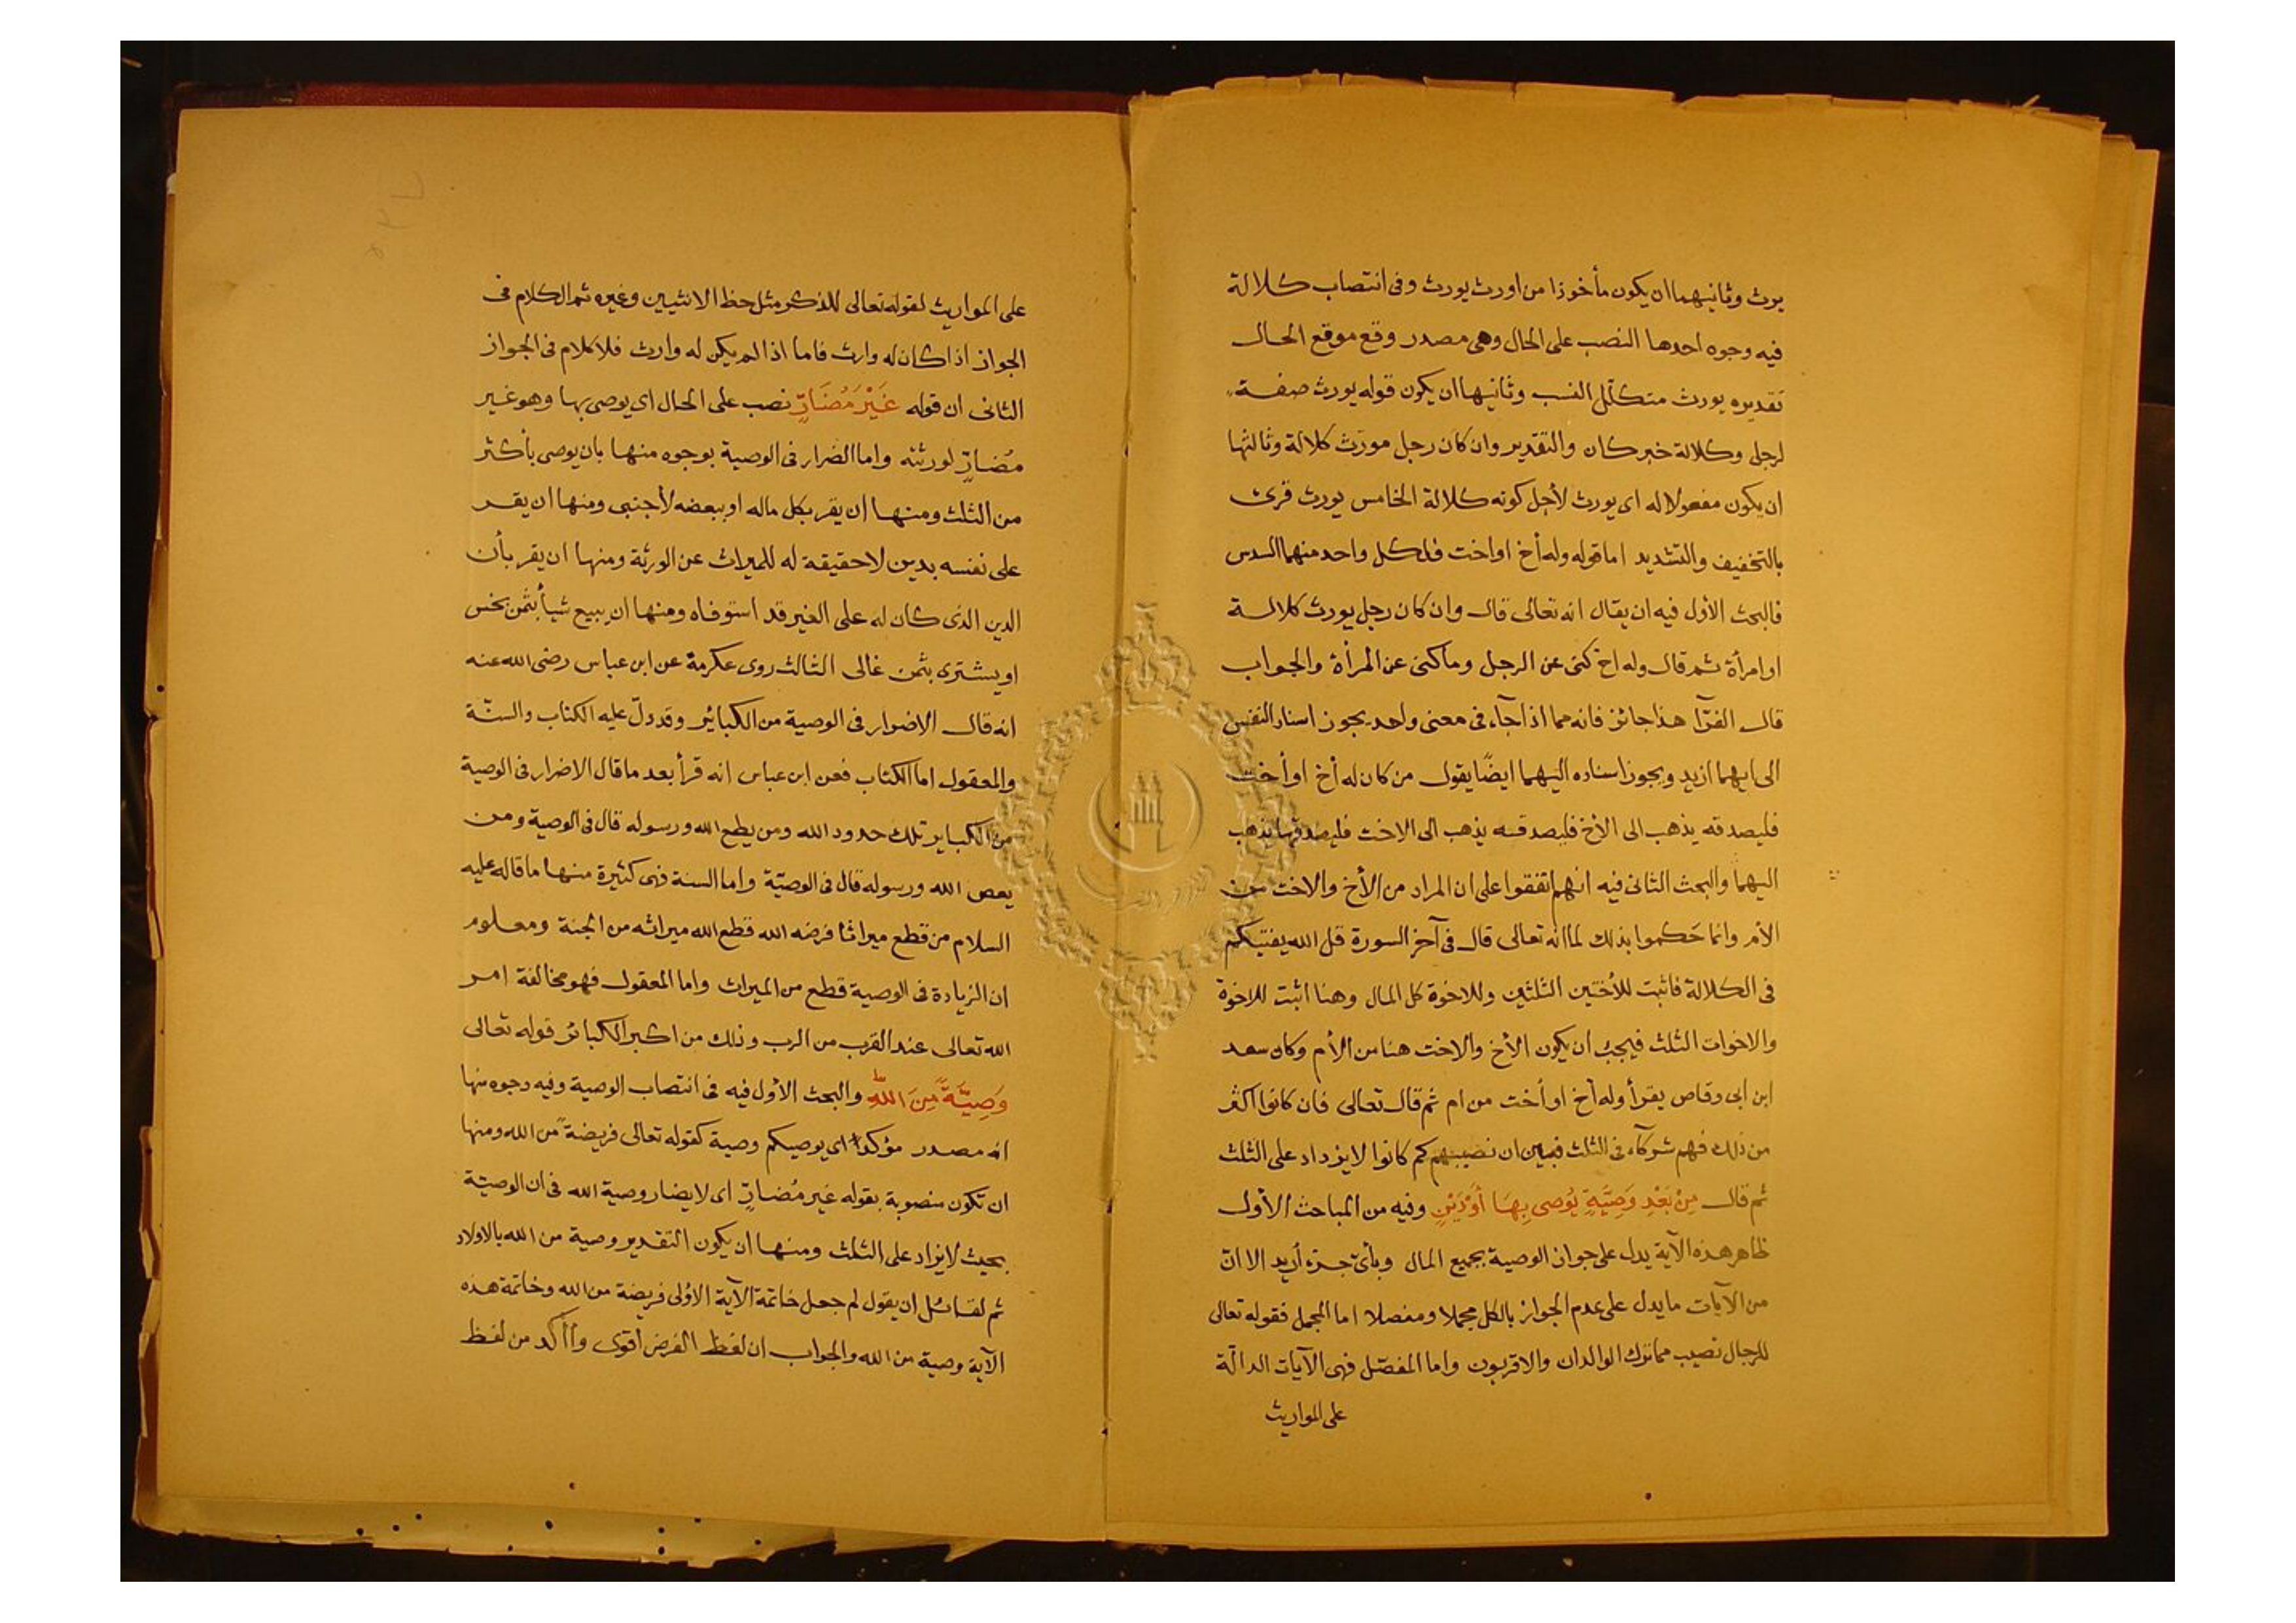 يرث وثانيهما ان يكون مأخوذا من اورث يورث وفى انتصاب كلالة
فيه وجوه احدها النصب على الحال وهى مصدر وقع موقع الحال
تقديره يورث متكلّل النسب وثانيها ان يكون قوله يورث صفة
لرجل وكلالة خبر كان والتقدير وان كان رجل مورَث كلالة وثالثها
ان يكون مفعولا له اى يورث لأجل كونه كلالة الخامس يورث قرئ
بالتخفيف والتشديد اما قوله وله أخ او اخت فلكل واحد منهما السدس
فالبحث الأول فيه ان يقال انه تعالى قال وان كان رجل يورث كلالة
او امرأة ثم قال وله اخ كنى عن الرجل وما كنى عن المرأة والجواب
قال الفرّآ هذا جائز فانه مما اذا جآء فى معنى واحد يجوز اسناد التفسير
الى ايهما ازيد ويجوز اسناده اليهما ايضًا يقول من كان له أخ او أخت
فليصدقه يذهب الى الأخ فليصدقه يذهب الى الاخت فليصدقها يذهب
اليهما والبحث الثانى فيه انهم اتفقوا على ان المراد من الأخ والاخت من
الأم وانما حَكموا بذلك لما انه تعالى قال فى آخر السورة قل الله يفتيكم
فى الكلالة فاثبت للأختين الثلثين وللاخوة كل المال وهنا اثبت للاخوة
والاخوات الثلث فيجب ان يكون الأخ والاخت هنا من الأم وكان سعد
ابن ابى وقاص يقرأ وله أخ او أخت من ام ثم قال تعالى فان كانوا اكثر
من ذلك فهم شركآء فى الثلث فبين ان نصيبهم كم كانوا لا يزداد على الثلث
ثم قال مِنْ بَعْدِ وَصِيَّةٍ يُوصى بِهَا أَوْدَيْنٍ وفيه من المباحث الأول
ظاهر هذه الآية يدل على جواز الوصية بجميع المال وبأىّ جزء أريد الا انّ
من الآيات ما يدل على عدم الجواز بالكل مجملا ومفصلا اما المجمل فقوله تعالى
للرجال نصيب مما ترك الوالدان والاقربون واما المفصّل فهى الآيات الدالّة
على المواريث
على المواريث لقوله تعالى للذكر مثل حظ الانثيين وغيره ثم الكلام فى
الجواز اذا كان له وارث فاما اذا لم يكن له وارث فلا كلام فى الجواز
الثانى ان قوله غَيْرَ مُضَارٍّ نصب على الحال اى يوصى بها وهو غير
مُضارٍّ لورثته واما الضرار فى الوصية بوجوه منها بان يوصى بأكثر
من الثلث ومنها ان يقر بكل ماله او ببعضه لأجنبى ومنها ان يقر
على نفسه بدين لا حقيقة له للميراث عن الورثة ومنها ان يقر بأن
الدين الذى كان له على الغير قد استوفاه ومنها ان يبيع شيأ بثمن بخس
او يشترى بثمن غالى الثالث روى عكرمة عن ابن عباس رضى الله عنه
انه قال الاضرار فى الوصية من الكبائر وقد دلّ عليه الكتاب والسنّة
والمعقول اما الكتاب فعن ابن عباس انه قرأ بعد ما قال الاضرار فى الوصية
من الكباير تلك حدود الله ومن يطع الله ورسوله قال فى الوصية ومن
يعص الله ورسوله قال فى الوصيّة واما السنة فهى كثيرة منها ما قاله عليه
السلام من قطع ميراثا فرضه الله قطع الله ميراثه من الجنة ومعلوم
ان الزيادة فى الوصية قطع من الميراث واما المعقول فهو مخالفة امر
الله تعالى عند القرب من الرب وذلك من اكبر الكبائر قوله تعالى
وَصِيَّةً مِنَ اللهِ والبحث الأول فيه فى انتصاب الوصية وفيه وجوه منها
انه مصدر مؤكد اى يوصيكم وصية كقوله تعالى فريضةً من الله ومنها
ان تكون منصوبة بقوله غير مُضارٍّ اى لا يضار وصية الله فى ان الوصيّة
بحيث لا يزاد على الثلث ومنها ان يكون التقدير وصية من الله بالاولاد
ثم لقائل ان يقول لم جعل خاتمة الآية الاولى فريضة من الله وخاتمة هذه
الآية وصية من الله والجواب ان لفظ الفرض أقوى وأأكد من لفظ